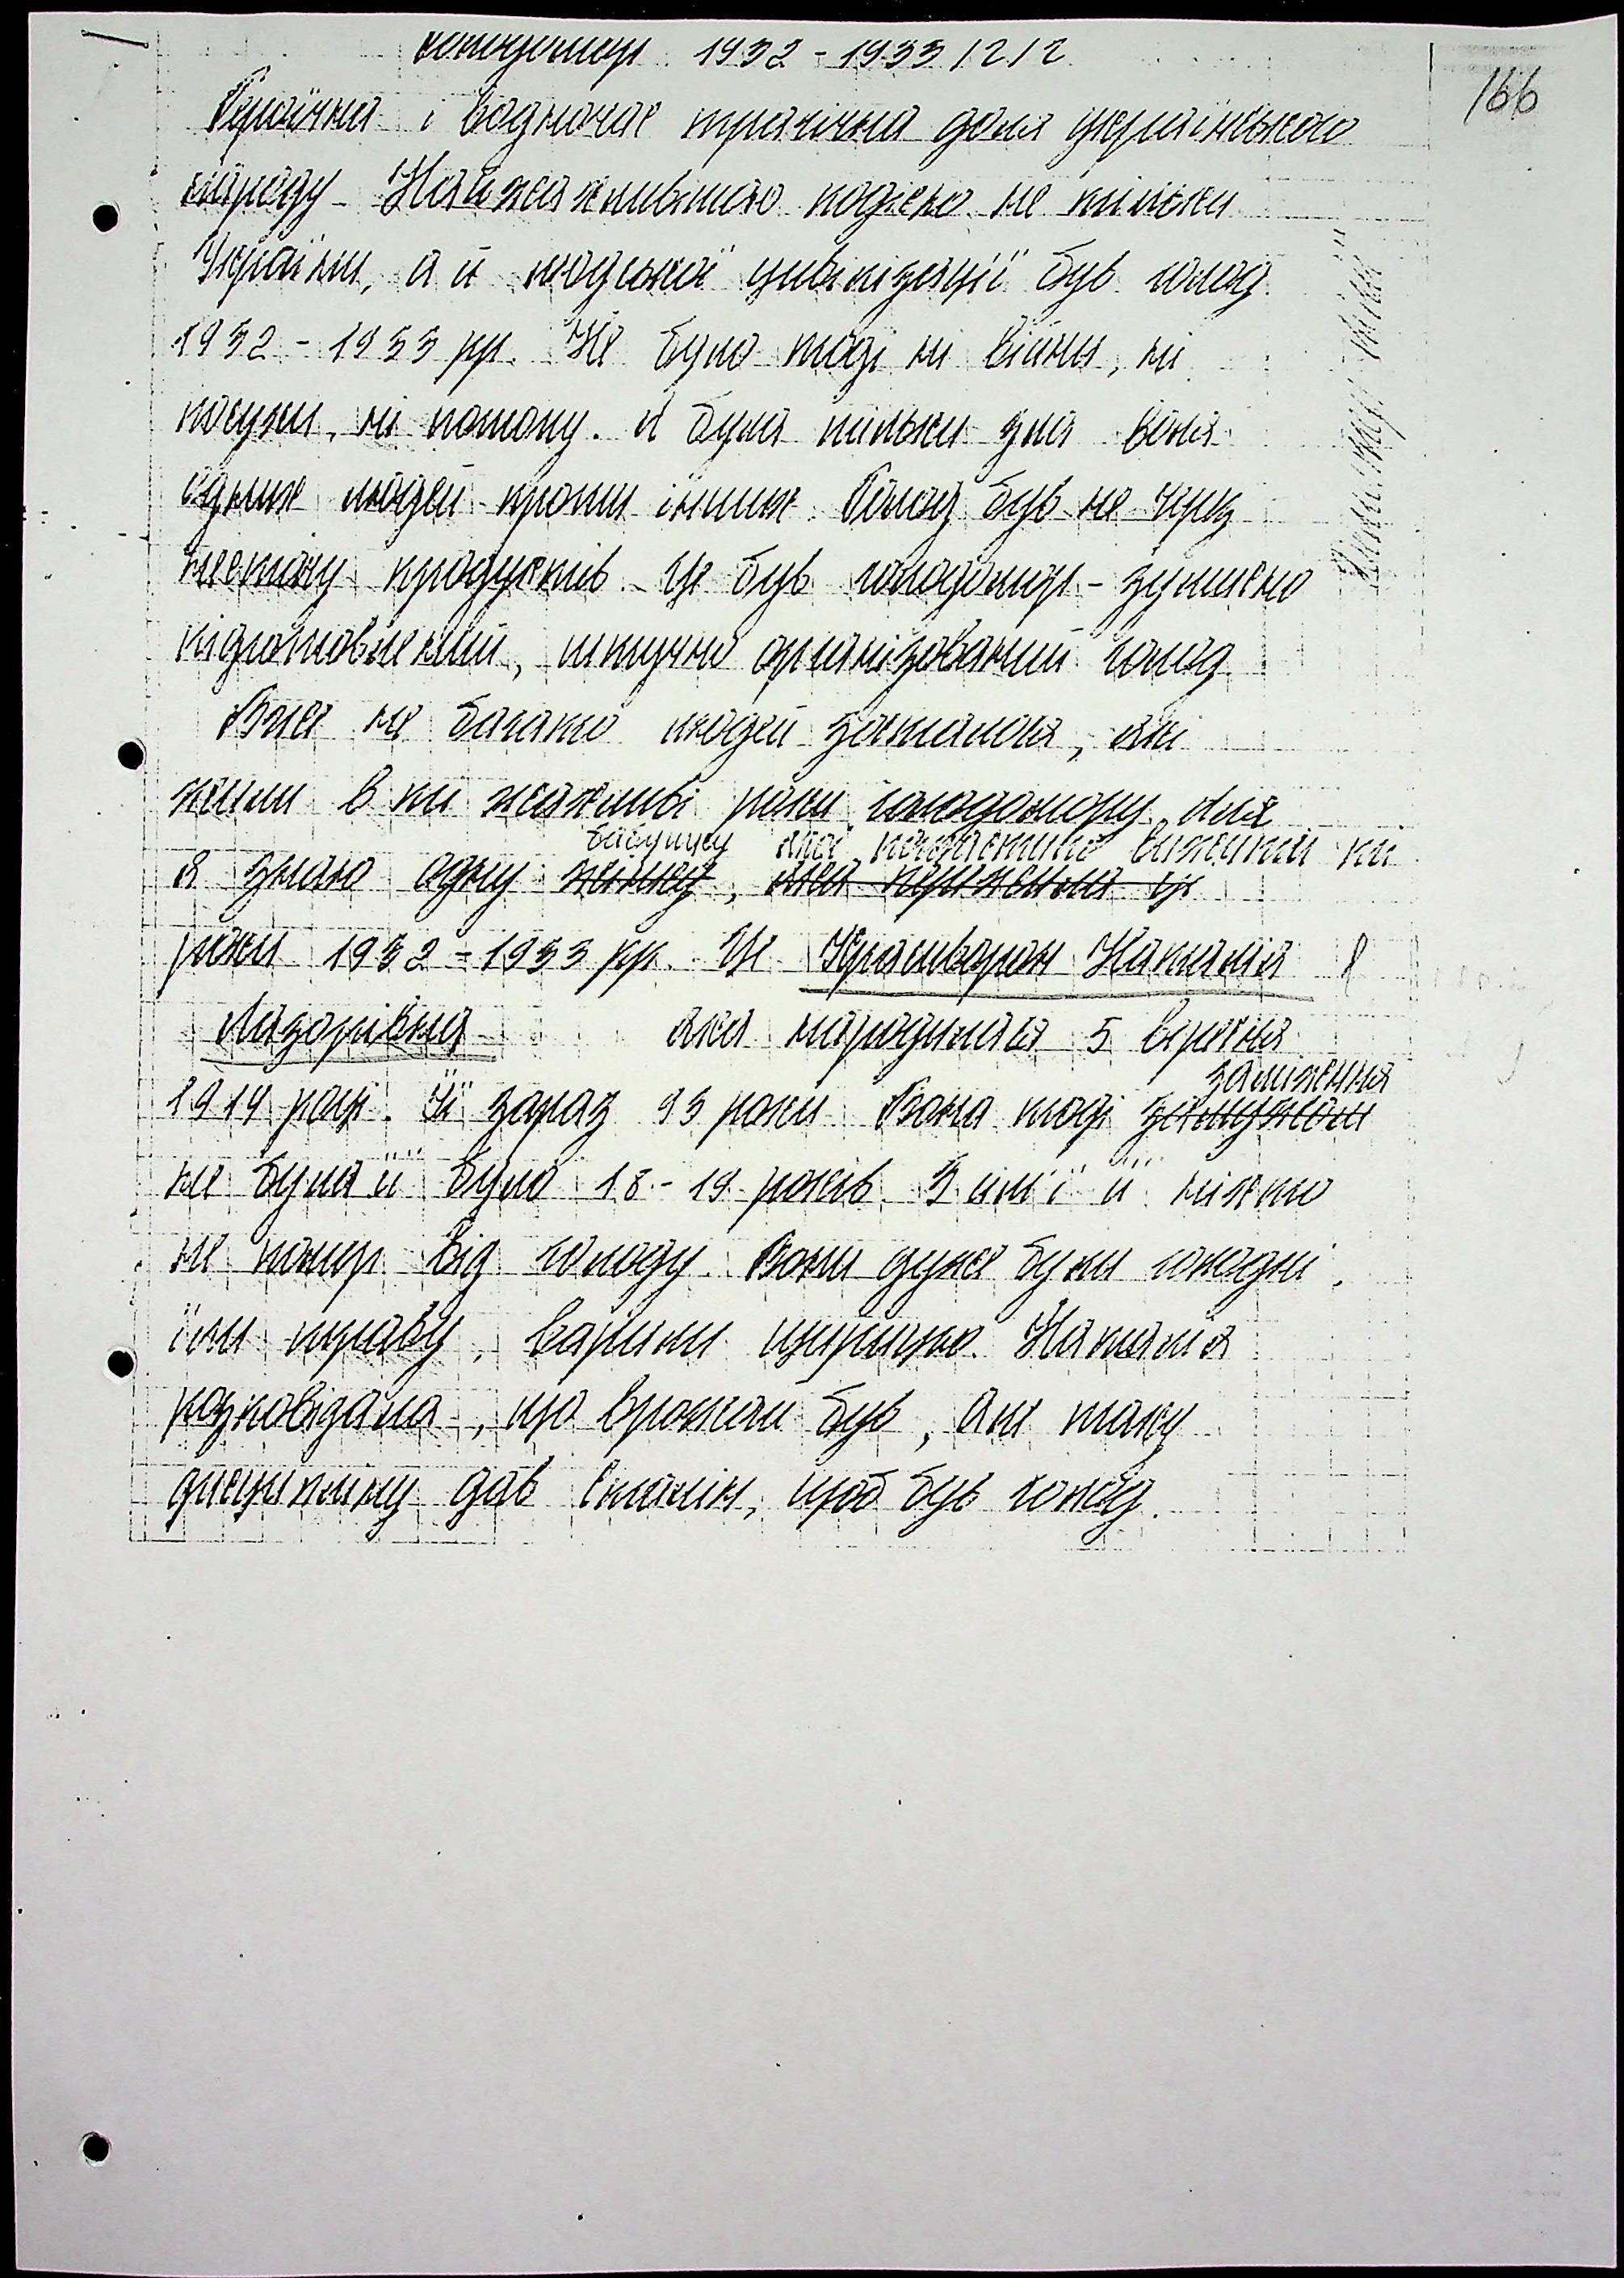 Голодомор 1932-1933 /2/2
166
Героїчна і водночас трагічна доля українського
народу. Найжахливішою подією не тільки
України, а й людської цивілізації був голод
1932-1933 рр. Не було тоді ні війни, ні
посухи, ні потопу. А була тільки зла воля
одних людей проти інших. Голод був не через
нестачу продуктів. Це був голодомор - зумисно
підготовлений, штучно організований голод.
Вже не багато людей зосталося, які
жили в ті жахливі роки голодомору. Але
бабушку якої пощастило вижити ти
я знаю одну жінку, яка пережила ці
роки 1932-1933 рр. Це Красиворон Наталія
Лазорівна яка народилася 5 вересня
заміжня
1914 році. Їй зараз 93 роки Вона тоді замужом
не була їй було 18-19 років. З сім'ї її ніхто
не помер від голоду. Вони дуже були голодні,
їли траву, варили щирицю. Наталія
розповідала, що врожай був, але таку
дисципліну дав Сталін, щоб був голод.